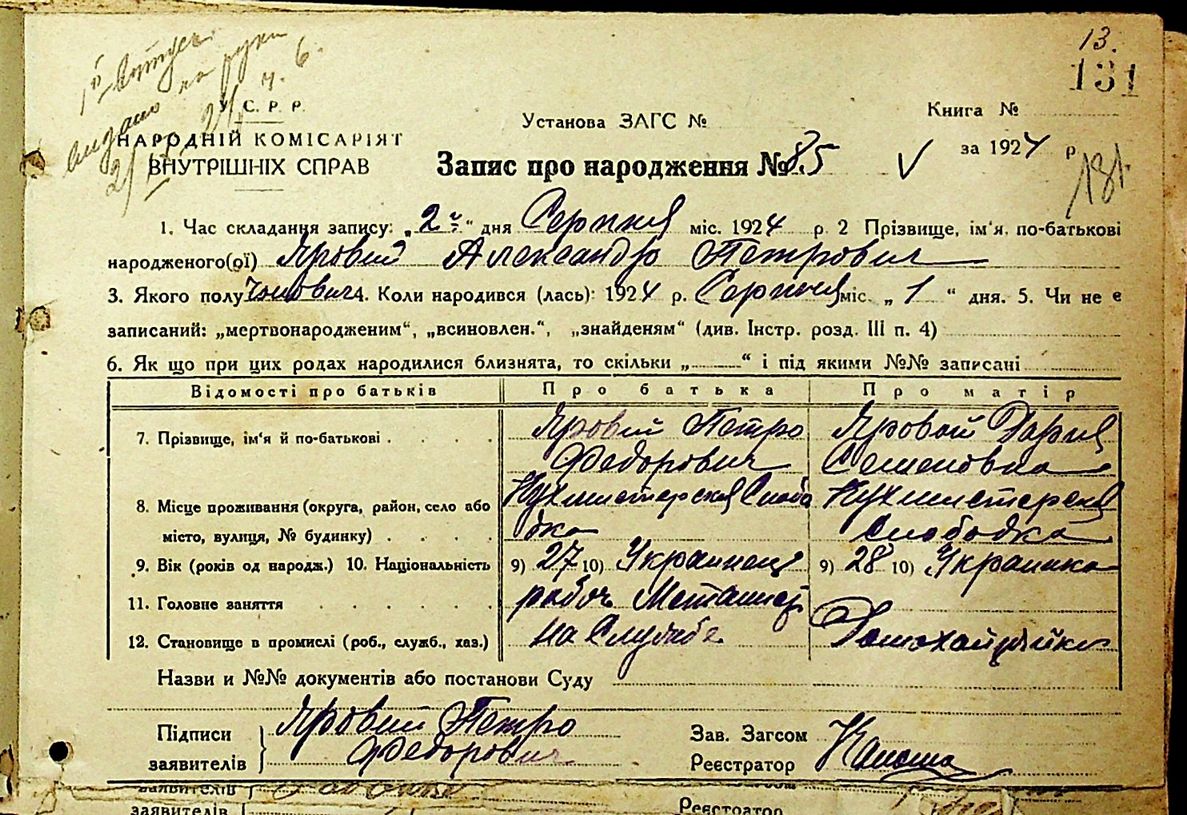 13.
131
1й Витус
видано на руки
2/IX 24 ч. 6
У.С.Р.Р.
НАРОДНІЙ КОМІСАРІЯТ
ВНУТРІШНІХ СПРАВ
Установа ЗАГС №
Книга №
за 1924 р
Запис про народження № 85 V
131
1. Час складання запису: „2" дня Серпня міс. 1924 р. 2 Прізвище, ім'я, по-батькові
народженого(ої) Яровий Александр Петрович
3. Якого полу Чоловіч 4. Коли народився (лась): 1924 р. Серпня міс. „1" дня. 5. Чи не є
записаний: „мертвонародженим", „всиновлен.", „знайденям" (див. Інстр. розд. III п. 4)
6. Як що при цих родах народилися близнята, то скільки „ " і під якими №№ записані
Відомості про батьків Про батька Про матір
7. Прізвище, ім'я й по-батькові Яровий Петро Яровой Дария
Федорович Семеновна
8. Місце проживання (округа, район, село або Кухмистерская Слобо Кухмистерская
місто, вулиця, № будинку) дка Слободка
9. Вік (років од народж.) 10. Національність 9) 27 10) Украинец 9) 28 10) Украинка
11. Головне заняття рабоч. Металист
12. Становище в промислі (роб., служб., хаз.) на Службе Домохазяйка
Назви и №№ документів або постанови Суду
Підписи Яровий Петро Зав. Загсом
заявителів Федорович Реєстратор
заявителів Загсом
заявителів Реєстратор